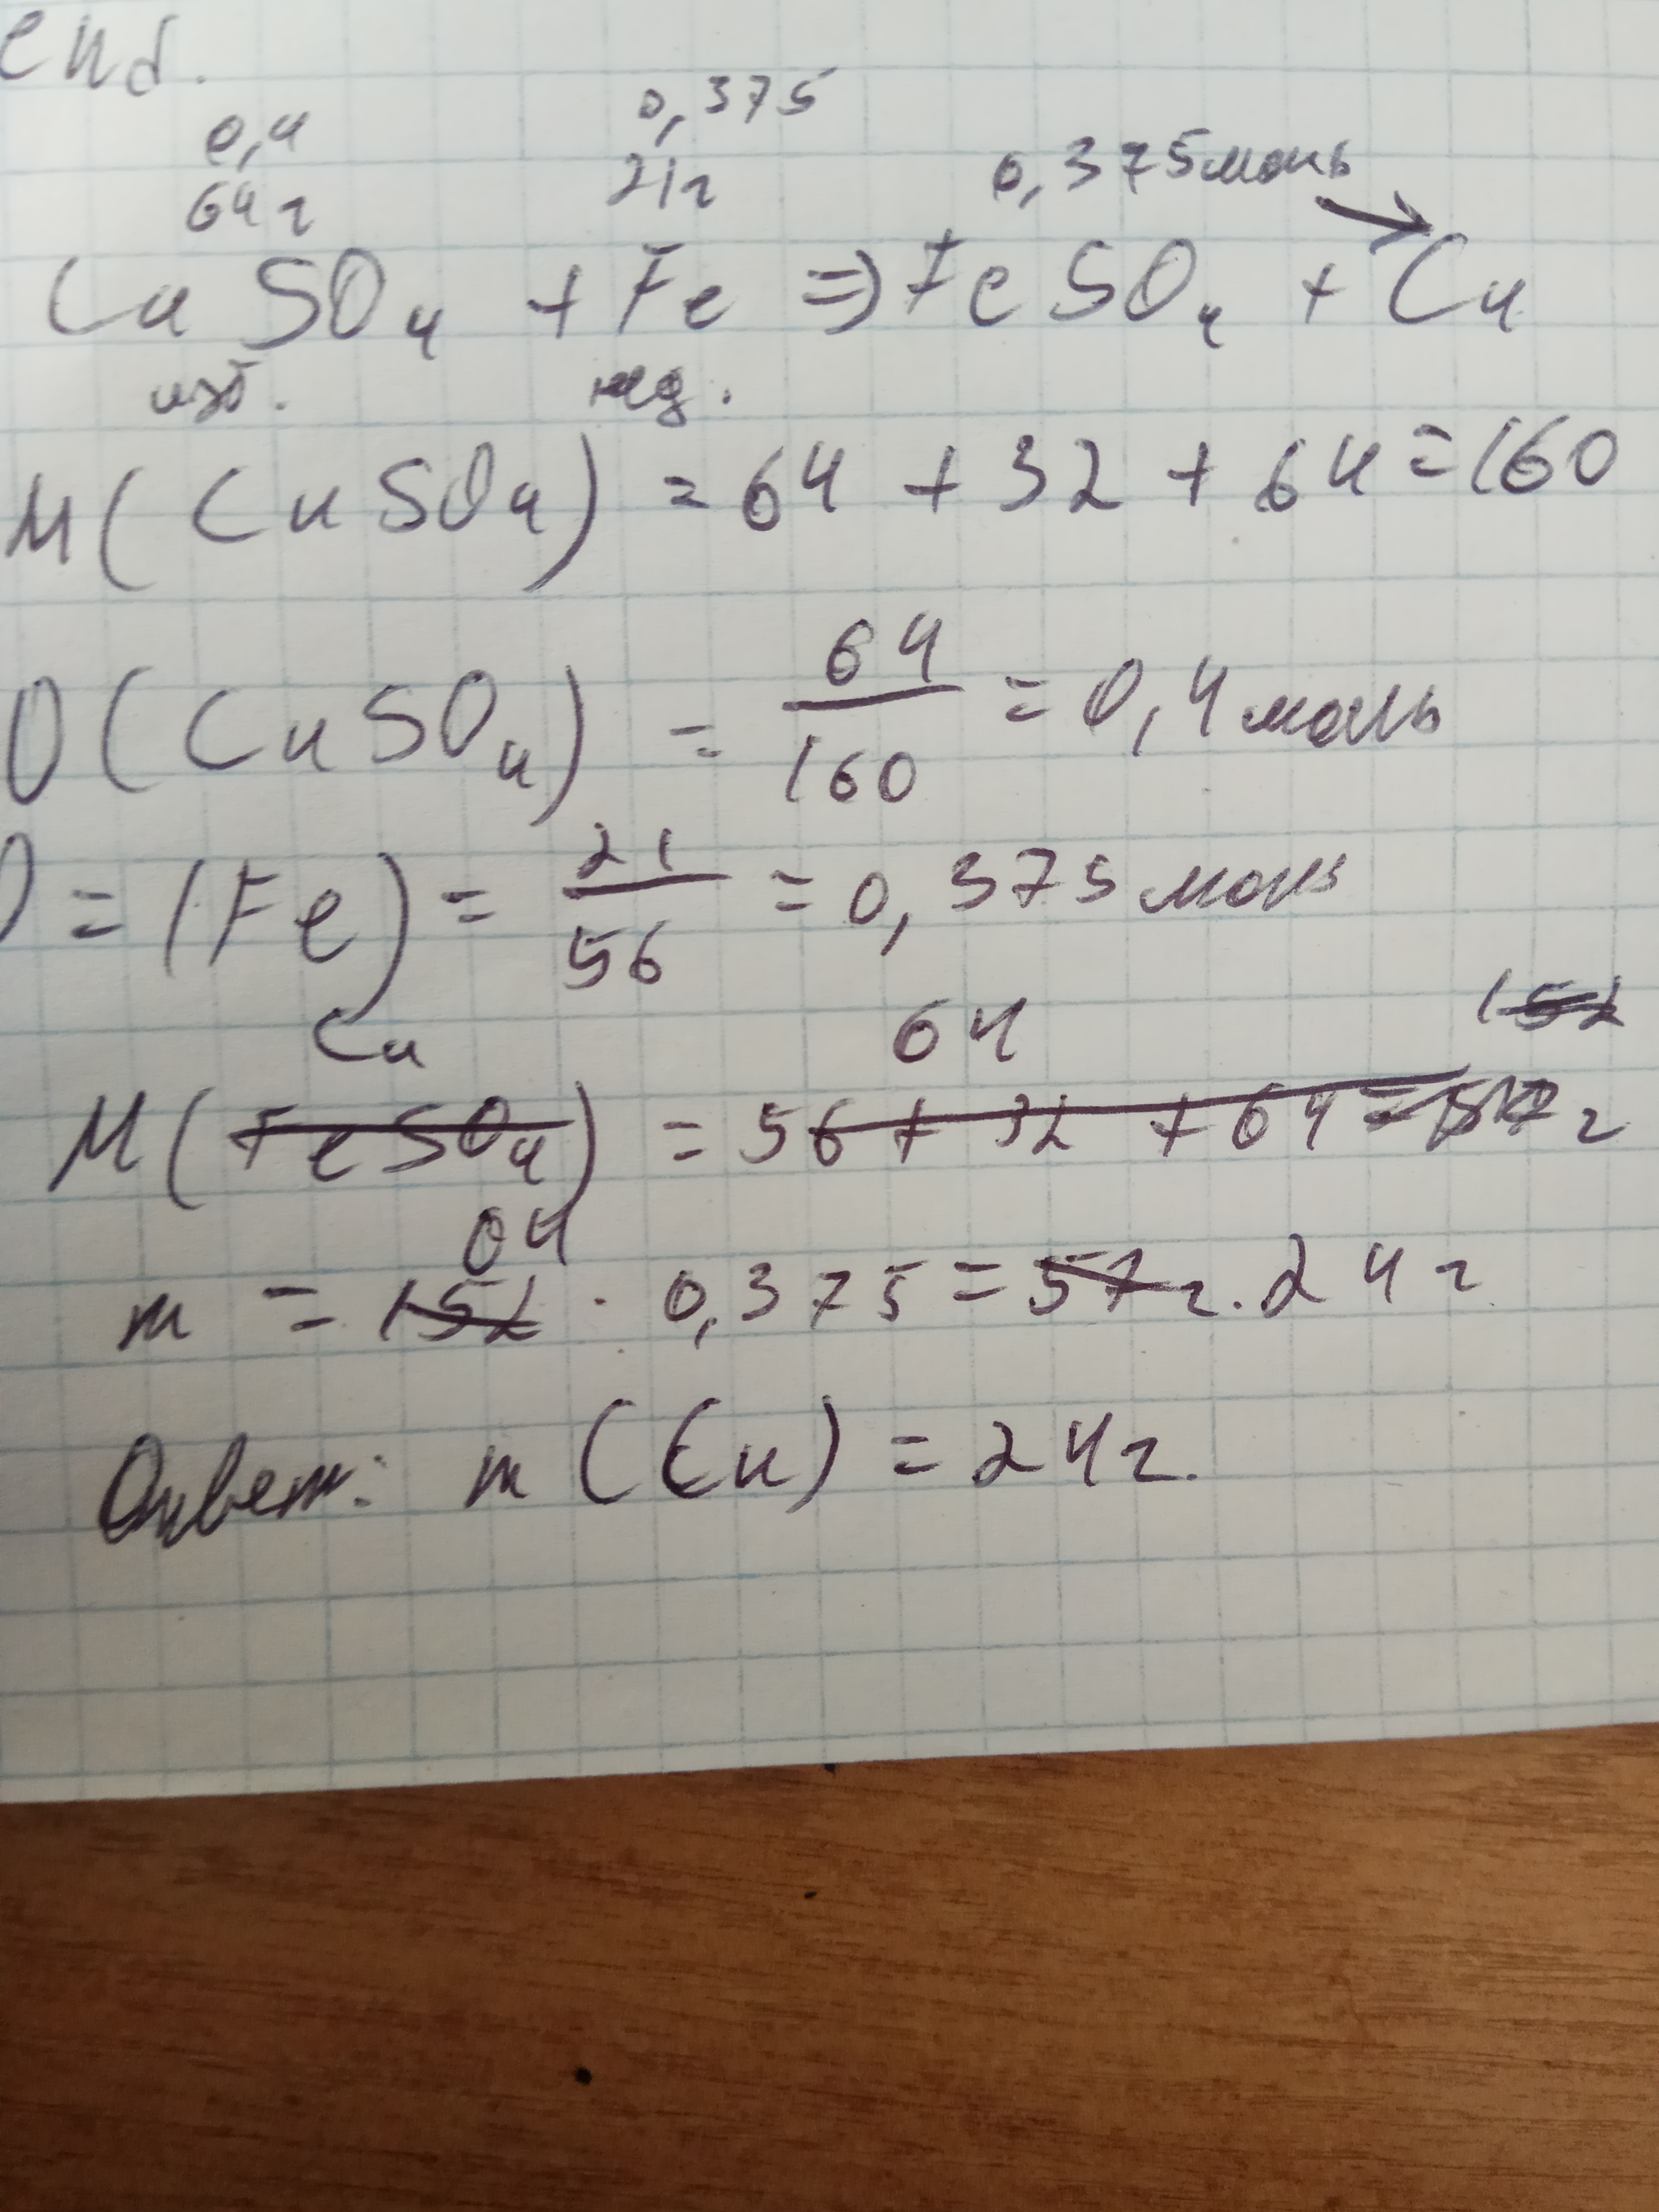 0,4 0,375
64г 21г 0,375моль
CuSO₄ + Fe => FeSO₄ + Cu
изб. нед.
M(CuSO₄) = 64 + 32 + 64 = 160
υ(CuSO₄) = 64/160 = 0,4 моль
υ = (Fe) = 21/56 = 0,375 моль
Cu 64 152
M(FeSO₄) = 56 + 32 + 64 = г
64
m = 152 · 0,375 = 57г. 24г
Ответ: m(Cu) = 24г.